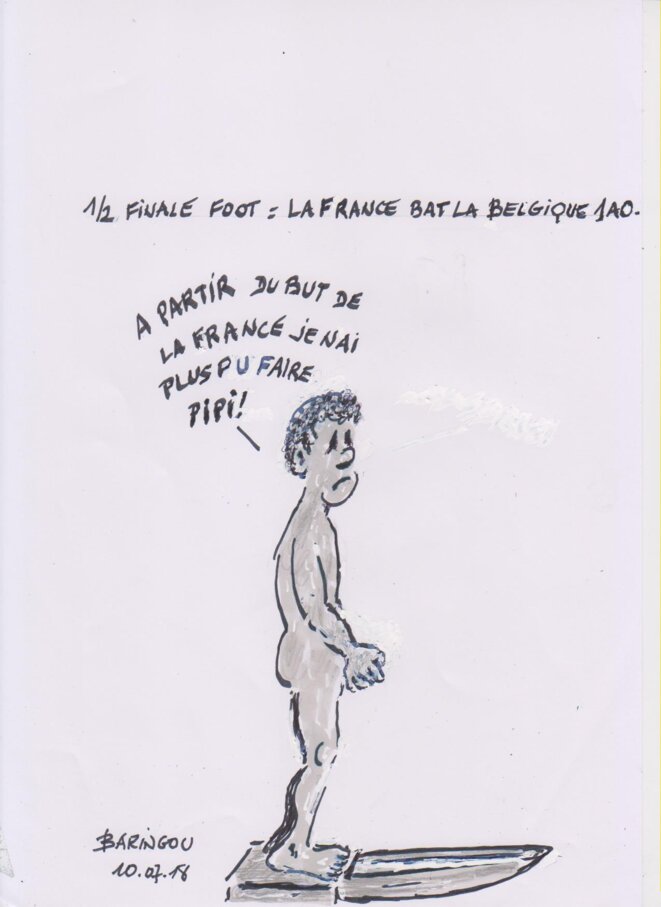 1/2 FINALE FOOT = LA FRANCE BAT LA BELGIQUE 1A0.
A PARTIR DU BUT DE
LA FRANCE JE NAI
PLUS PU FAIRE
PIPI!
BARINGOU
10.07.18